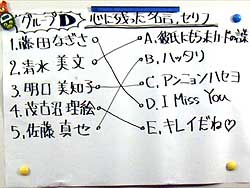 グループD 心に残った名言,セリフ
1.藤田なぎさ
2.清水美文
3.明日美知子
4.茂古沼理絵
5.佐藤真せ
A.彼氏は
B.ハッタリ
C.アンニョンハセヨ
D.I Miss You
E.キレイだね♡